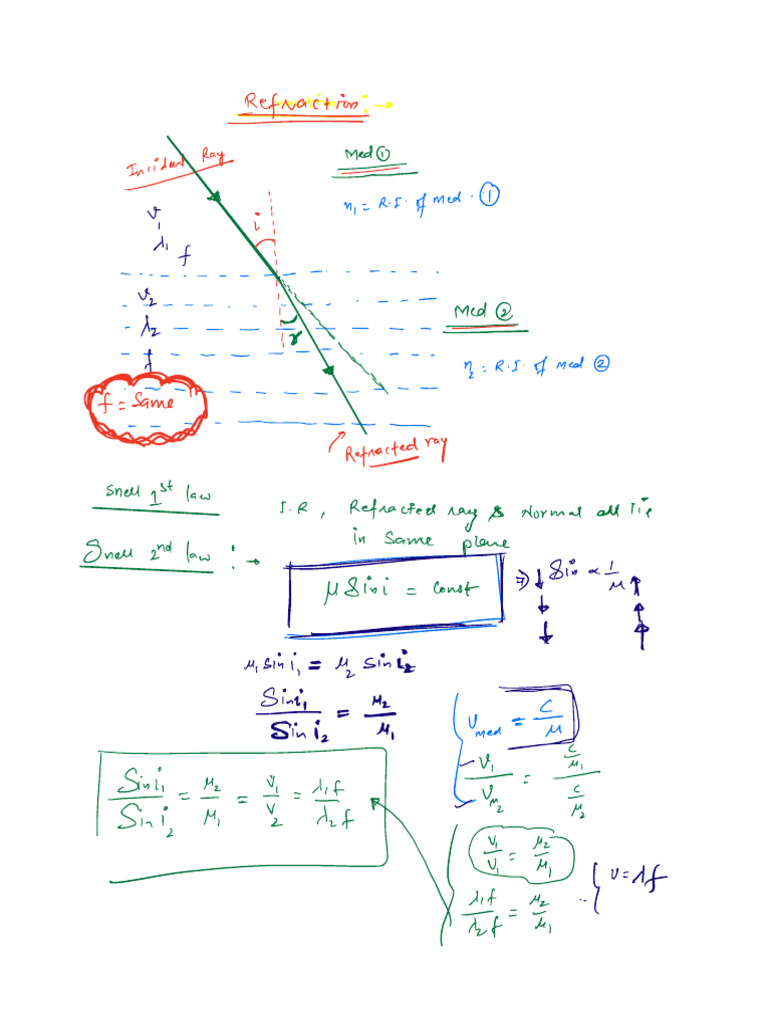 Refraction: →
Incident Ray
Med ①
n₁ = R.I. of med. ①
v₁
λ₁
f
i
v₂
λ₂
f
r
Med ②
n₂ = R.I. of med ②
f = Same
Refracted ray
Snell 1st law
I.R, Refracted ray & Normal all lie
in Same plane
Snell 2nd law : →
μ Sin i = const
⇒ ↓ Sin ∝ 1/μ ↑
↓ ↑
↓ ↑
μ₁ sin i₁ = μ₂ sin i₂
Sin i₁ / Sin i₂ = μ₂ / μ₁
v_med = C / μ
v₁ / v_m₂ = (C/μ₁) / (C/μ₂)
Sin i₁ / Sin i₂ = μ₂ / μ₁ = v₁ / v₂ = λ₁f / λ₂f
v₁ / v₁ = μ₂ / μ₁
λ₁f / λ₂f = μ₂ / μ₁
v = λf